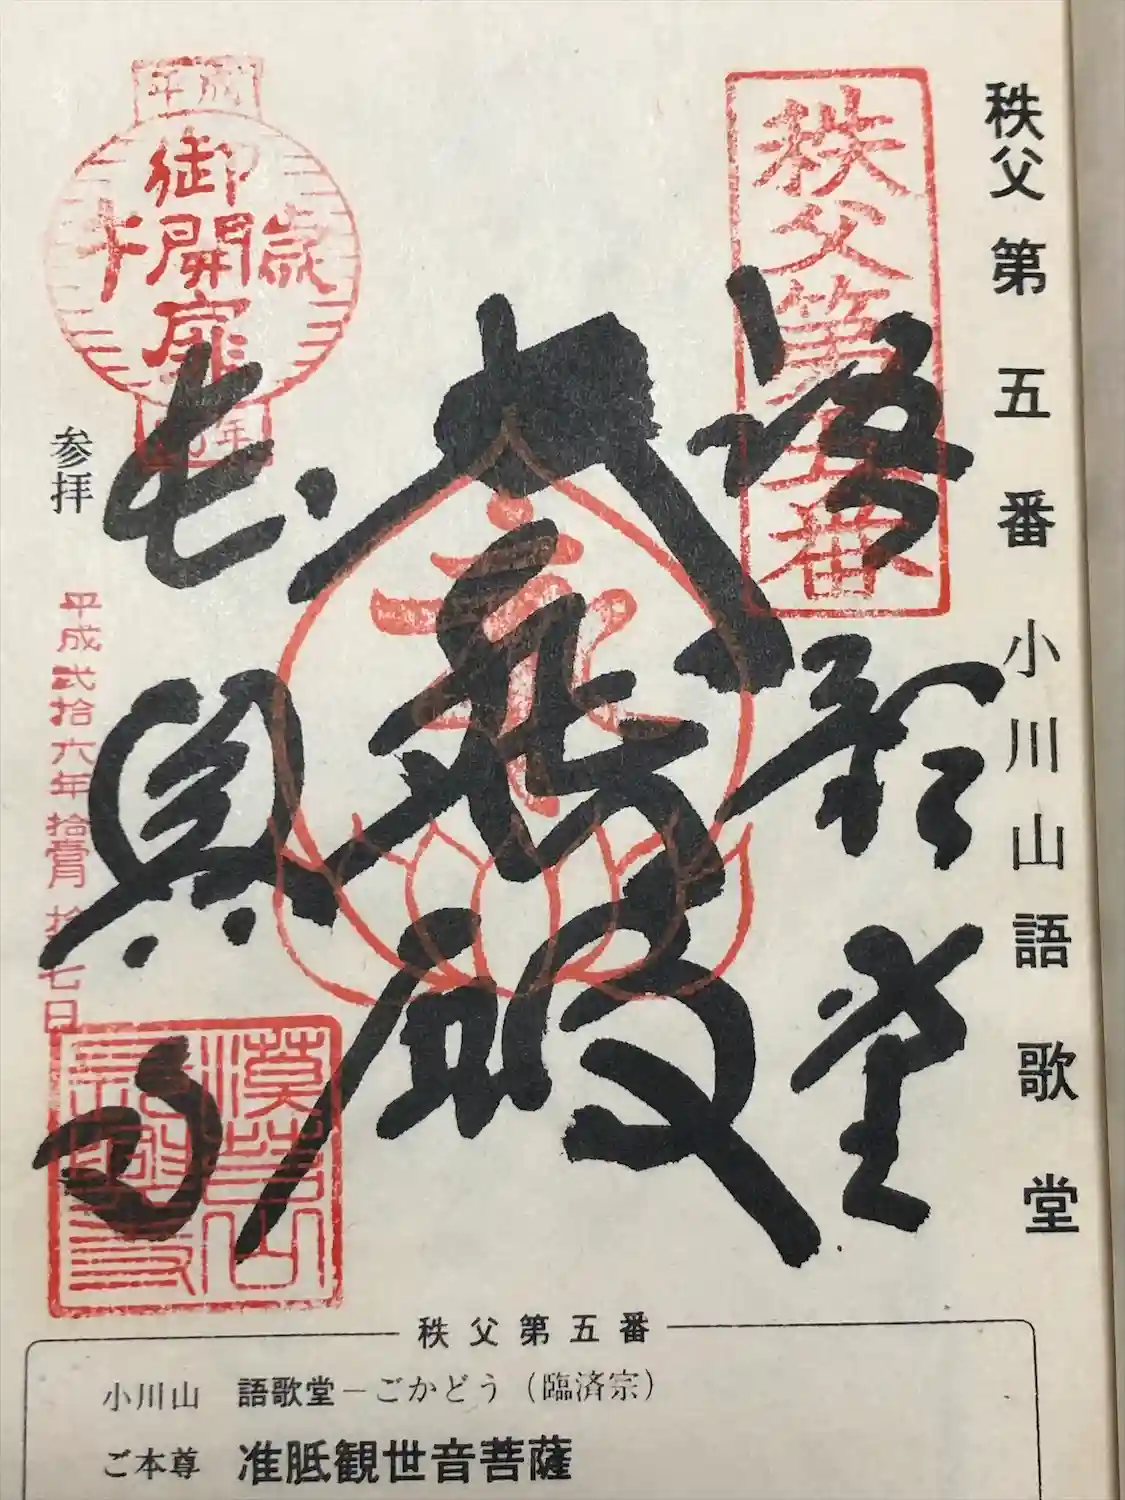 秩父第五番 小川山語歌堂
秩父第五番
語歌堂
大悲殿
長興寺
平成
御開扉
午歳
年
参拝
平成弐拾六年拾壹月拾七日
秩父第五番
小川山 語歌堂－ごかどう（臨済宗）
ご本尊 准胝観世音菩薩